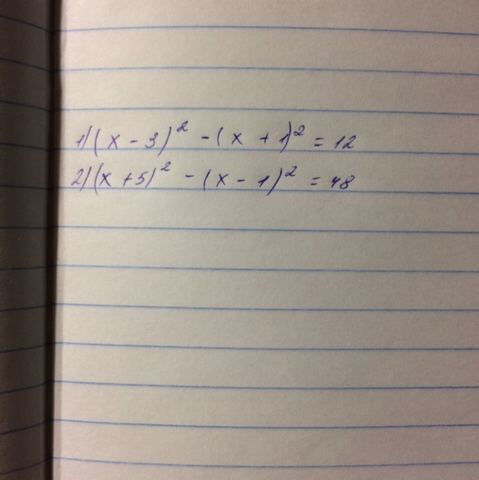 1) (x - 3)² - (x + 1)² = 12
2) (x + 5)² - (x - 1)² = 48